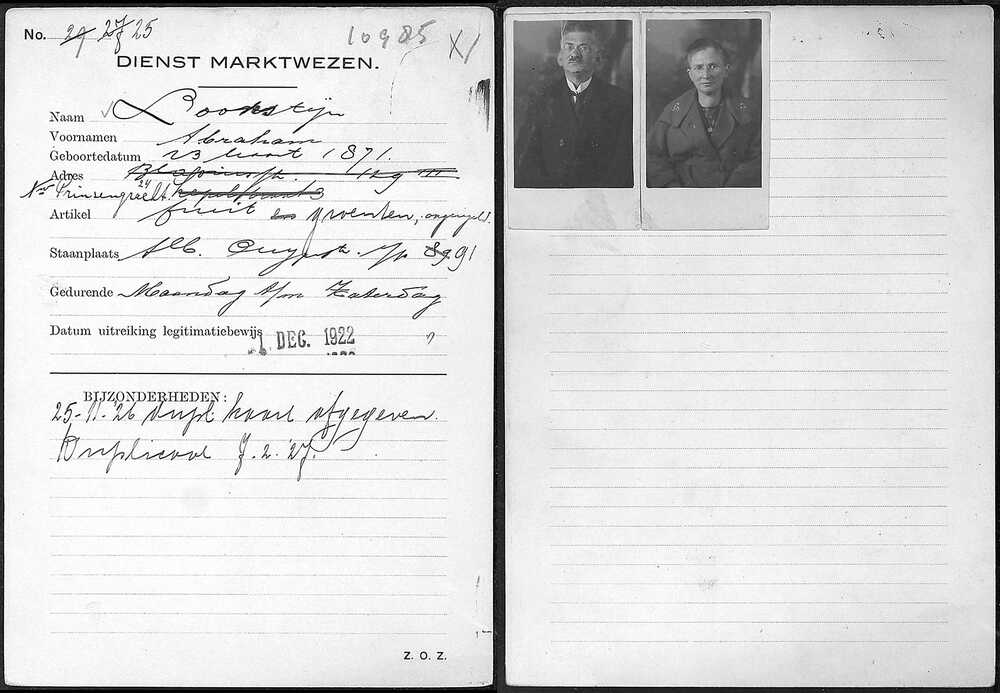 No. 27 25
10985 XI
DIENST MARKTWEZEN.
Naam Lookstijn
Voornamen Abraham
Geboortedatum 23 Maart 1871.
Adres 129 III
Prinsengracht 24
Artikel fruit en groenten,
Staanplaats Alb. Cuypstr. 91
Gedurende Maandag t/m Zaterdag
Datum uitreiking legitimatiebewijs 1 DEC. 1922
BIJZONDERHEDEN:
25-11-'26 dupl. kaart afgegeven.
Duplicaat 7.2.'27.
Z. O. Z.